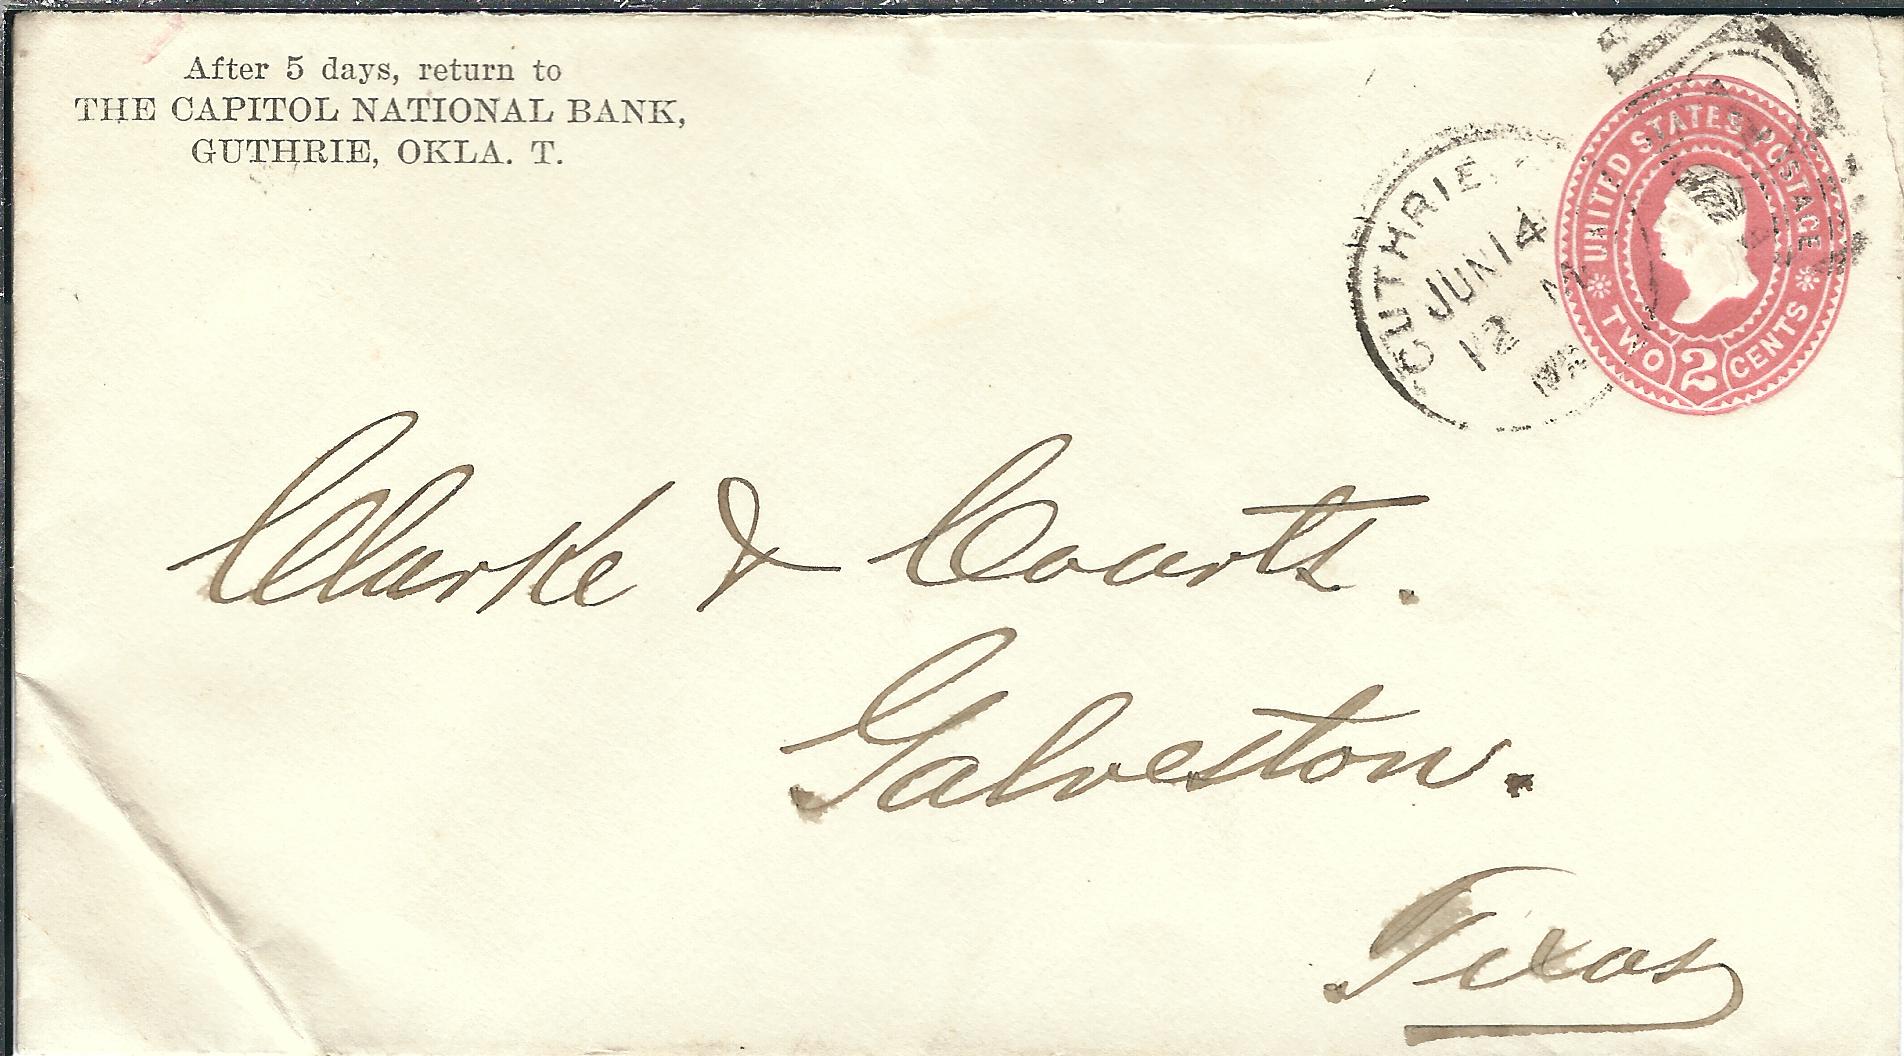 After 5 days, return to
THE CAPITOL NATIONAL BANK,
GUTHRIE, OKLA. T.
GUTHRIE,
JUN 14
12 M
UNITED STATES POSTAGE
TWO 2 CENTS
Clarke & Courts.
Galveston.
Texas